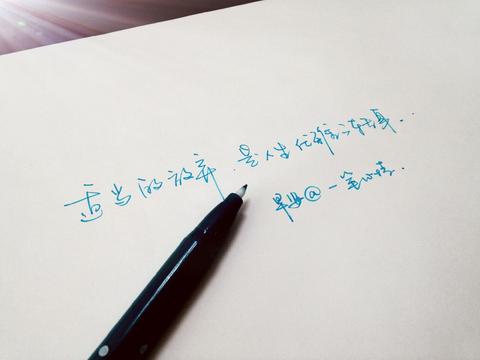 适当的放弃.是人生优雅的转身..
早安@一笔心情.